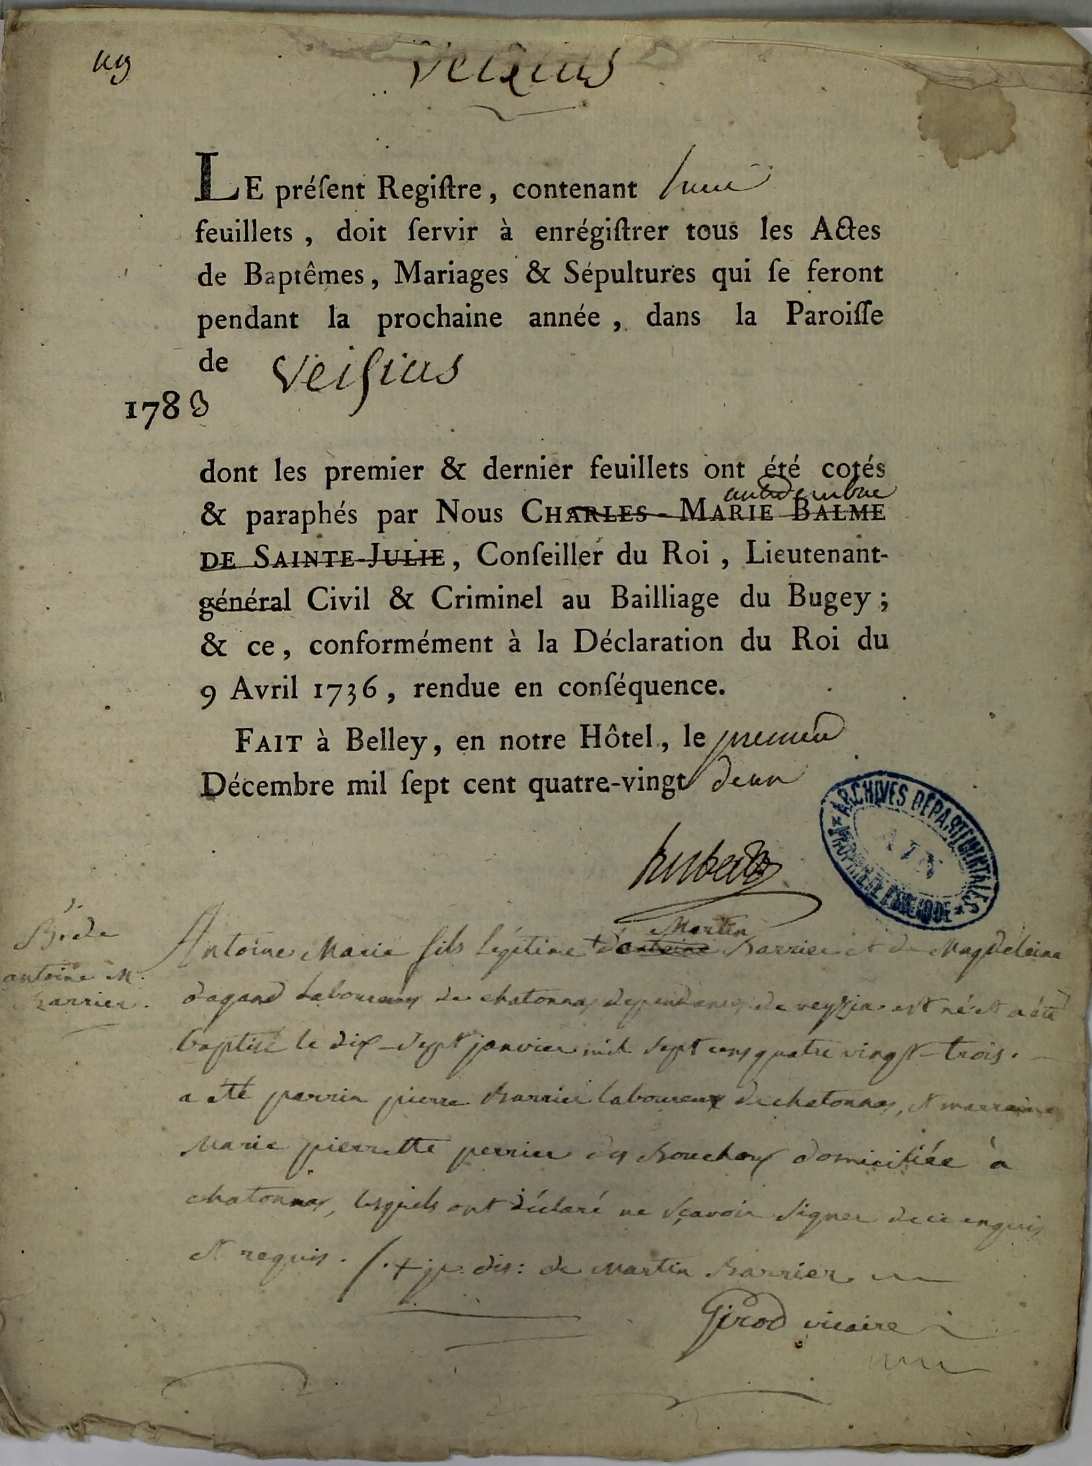 Veisius
LE préſent Regiſtre, contenant
feuillets, doit ſervir à enrégiſtrer tous les Actes
de Baptêmes, Mariages & Sépultures qui ſe feront
pendant la prochaine année, dans la Paroiſſe
de Veisius
1783
dont les premier & dernier feuillets ont été cotés
& paraphés par Nous CHARLES-MARIE BALME
DE SAINTE-JULIE, Conſeiller du Roi, Lieutenant-
général Civil & Criminel au Bailliage du Bugey;
& ce, conformément à la Déclaration du Roi du
9 Avril 1736, rendue en conſéquence.
FAIT à Belley, en notre Hôtel, le premier
Décembre mil ſept cent quatre-vingt deux
ARCHIVES DÉPARTEMENTALES
AIN
Martin
antoine M.
Barrier.
Antoine Marie fils légitime + d'antoine Barrier et de Magdeleine
dagand laboureur de chatonnas dependance de veyzia est né et a été
baptisé le dix-sept janvier mil sept cens quatre vingt-trois.
a été parrin pierre Barrier laboureur de chatonnas, et marraine
Marie pierrette perrier des Bouchoux domiciliée à
chatonnas, lesquels ont déclaré ne sçavoir signer de ce enquis
et requis. /. + je dis: de Martin Barrier
Girod vicaire